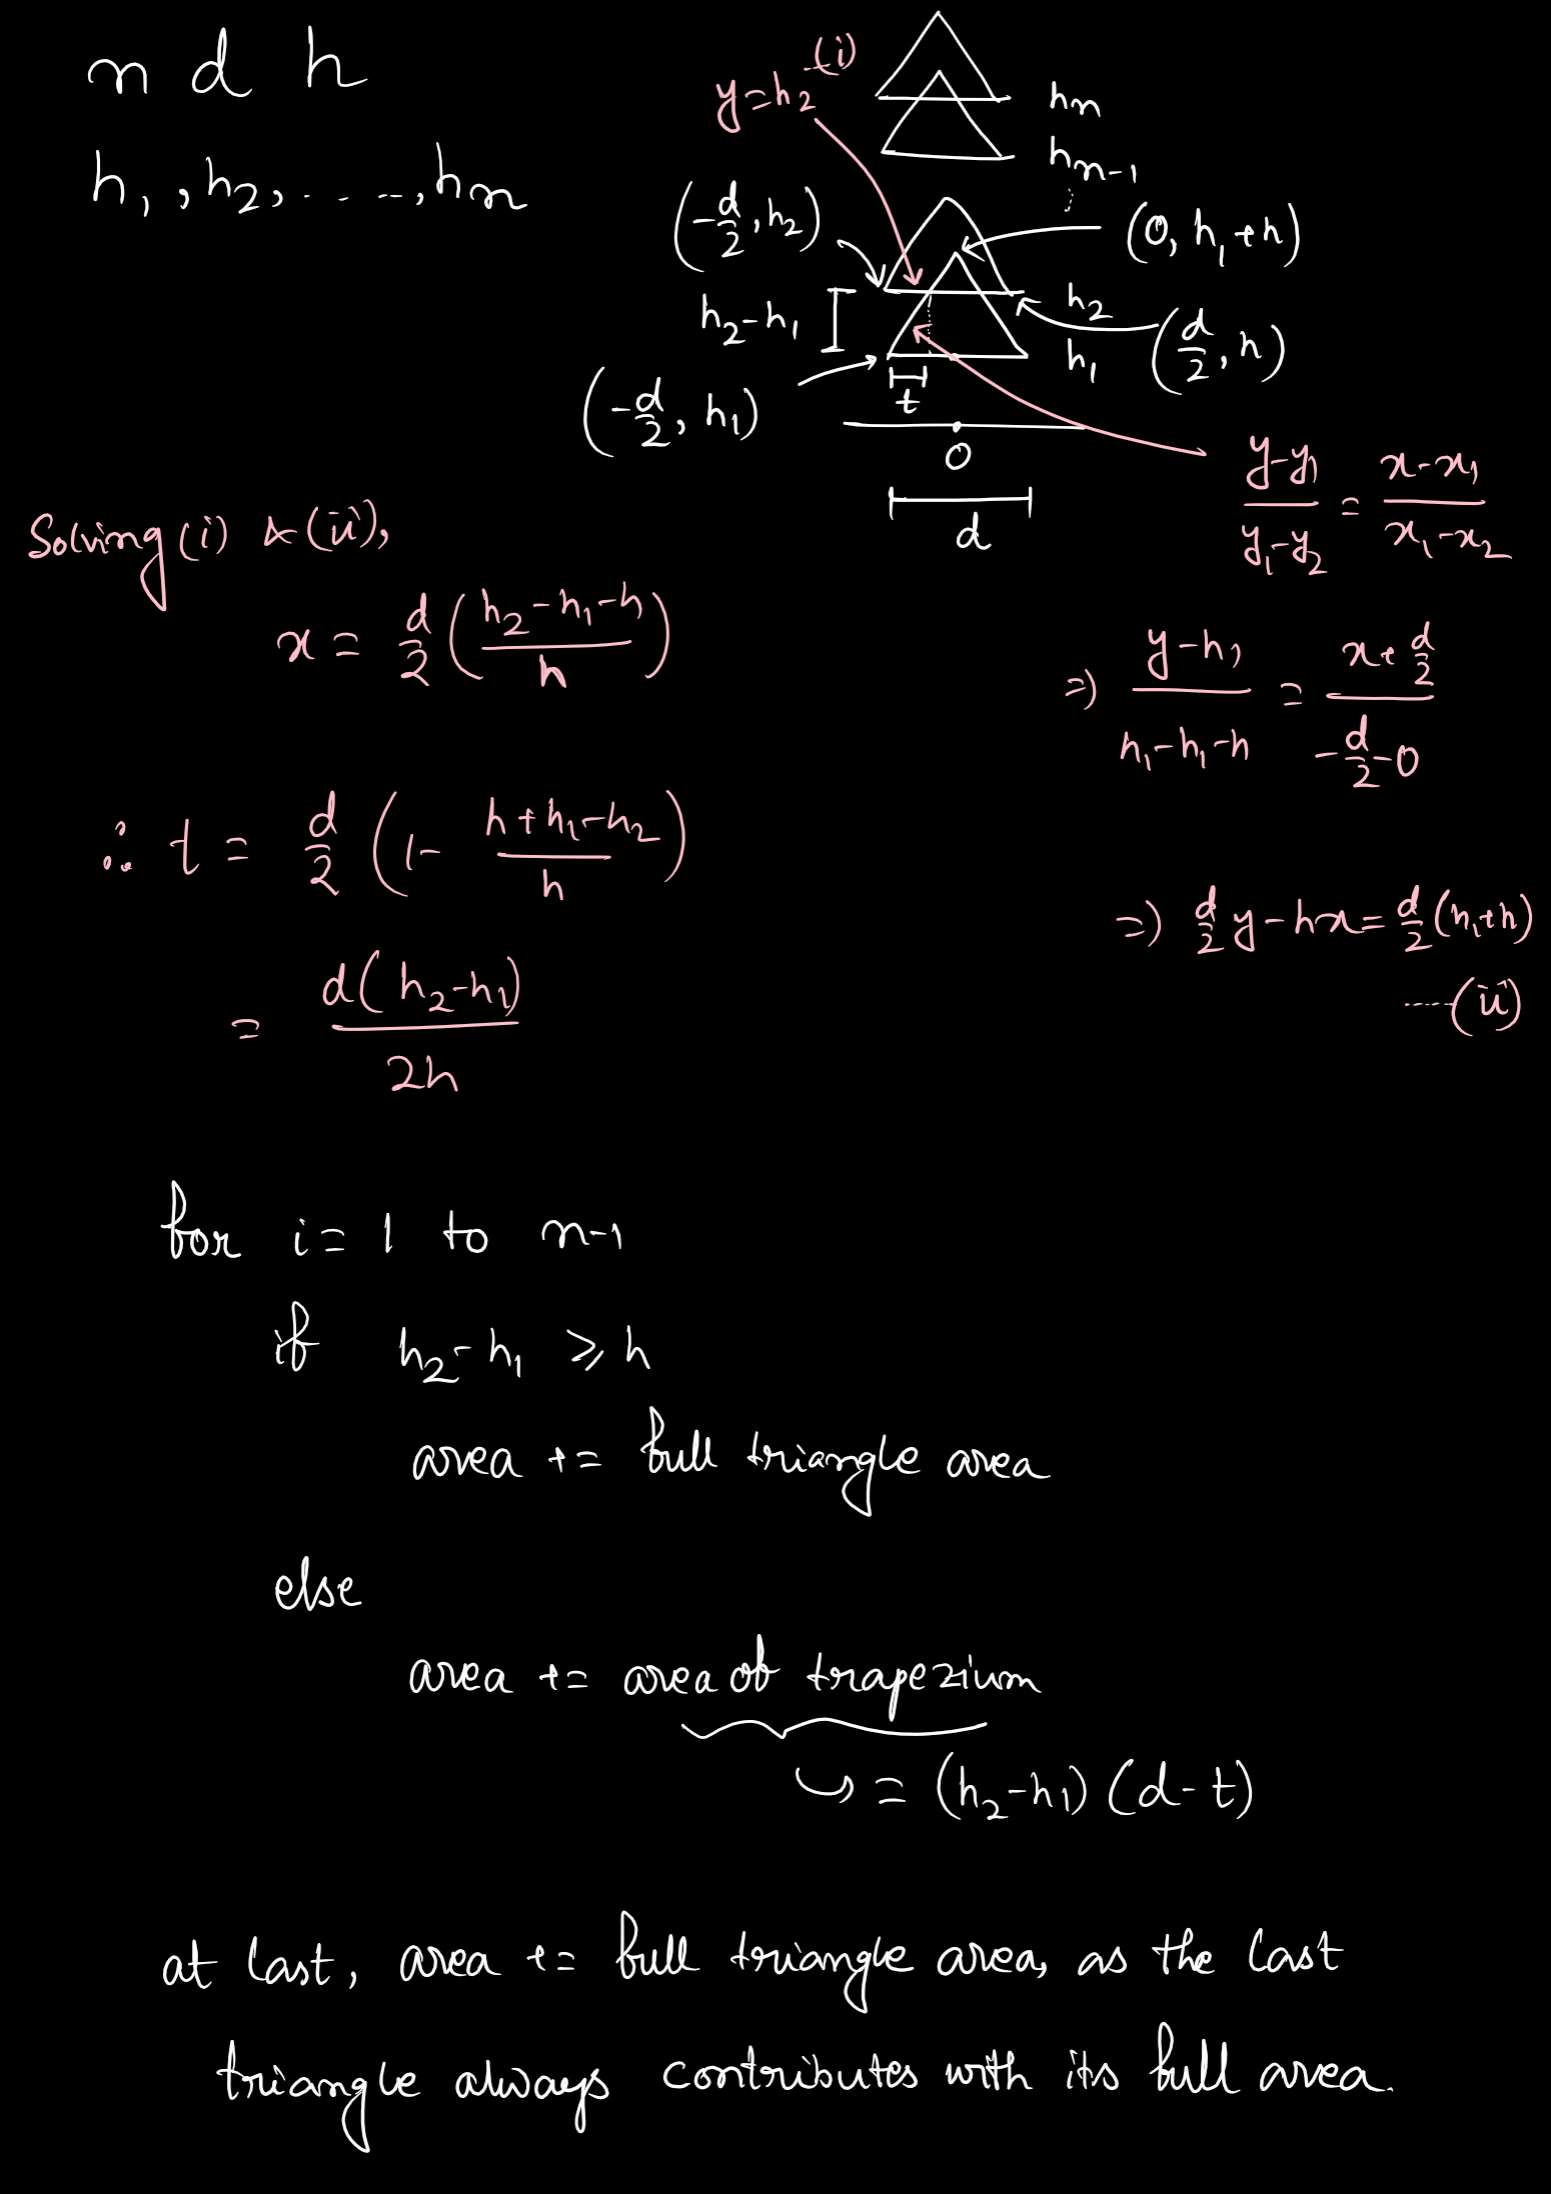 n d h
h₁, h₂, ....., hₙ
y=h₂ -(i)
hₙ
hₙ₋₁
(-d/2, h₂)
(0, h₁+h)
h₂-h₁
h₂
h₁
(d/2, h)
(-d/2, h₁)
t
0
d
(y-y₁)/(y₁-y₂) = (x-x₁)/(x₁-x₂)
⇒ (y-h₁)/(h₁-h₁-h) = (x+d/2)/(-d/2-0)
⇒ d/2 y-hx = d/2 (h₁+h)
-----(ii)
Solving (i) & (ii),
x = d/2 ((h₂-h₁-h)/h)
∴ t = d/2 (1- (h+h₁-h₂)/h)
= d(h₂-h₁)/2h
for i = 1 to n-1
if h₂-h₁ ⩾ h
area += full triangle area
else
area += area of trapezium
↪ = (h₂-h₁) (d-t)
at last, area += full triangle area, as the last
triangle always contributes with its full area.